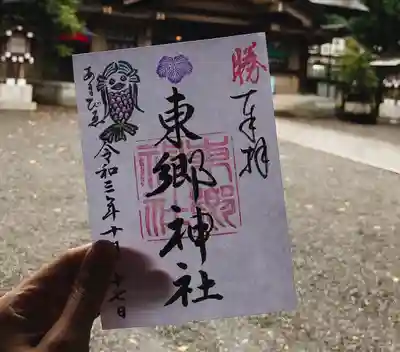 勝
奉拝
東郷神社
東郷
神社
あまびゑ
令和三年十月十七日